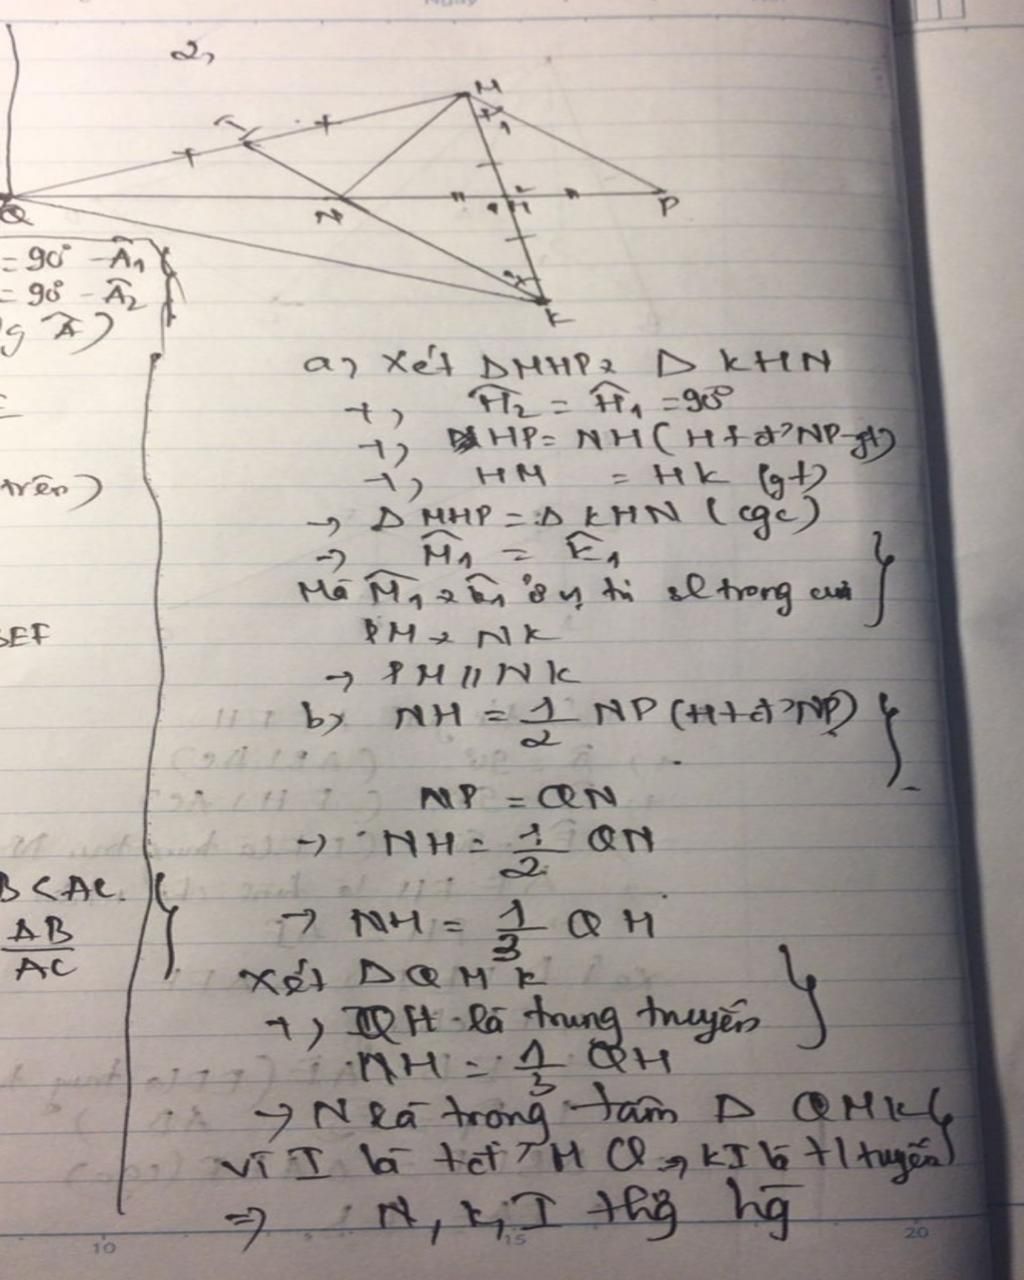 2,
M
I
1
Q
N
H
P
K
= 90° - Â1
= 90° - Â2
g Â)
trên)
EF
B < AC
AB
AC
a, Xét ΔMHP2 Δ KHN
+, Ĥ2 = Ĥ1 = 90°
+, HP = NH (H t đ² NP-gt)
+, HM = HK (gt)
→ Δ MHP = Δ KHN (cgc)
→ M̂1 = K̂1
Mà M̂1 2 K̂1 ở vị trí sl trong của
PM 2 NK
→ PM // NK
b, NH = 1/2 NP (H t đ² NP)
NP = QN
→ NH = 1/2 QN
→ NH = 1/3 QH
Xét Δ QMK
+, QH là trung tuyến
NH = 1/3 QH
→ N là trọng tâm Δ QMK
Vì I là tđ² MQ → KI là tr tuyến
⇒ N, K, I thg hg
10
15
20